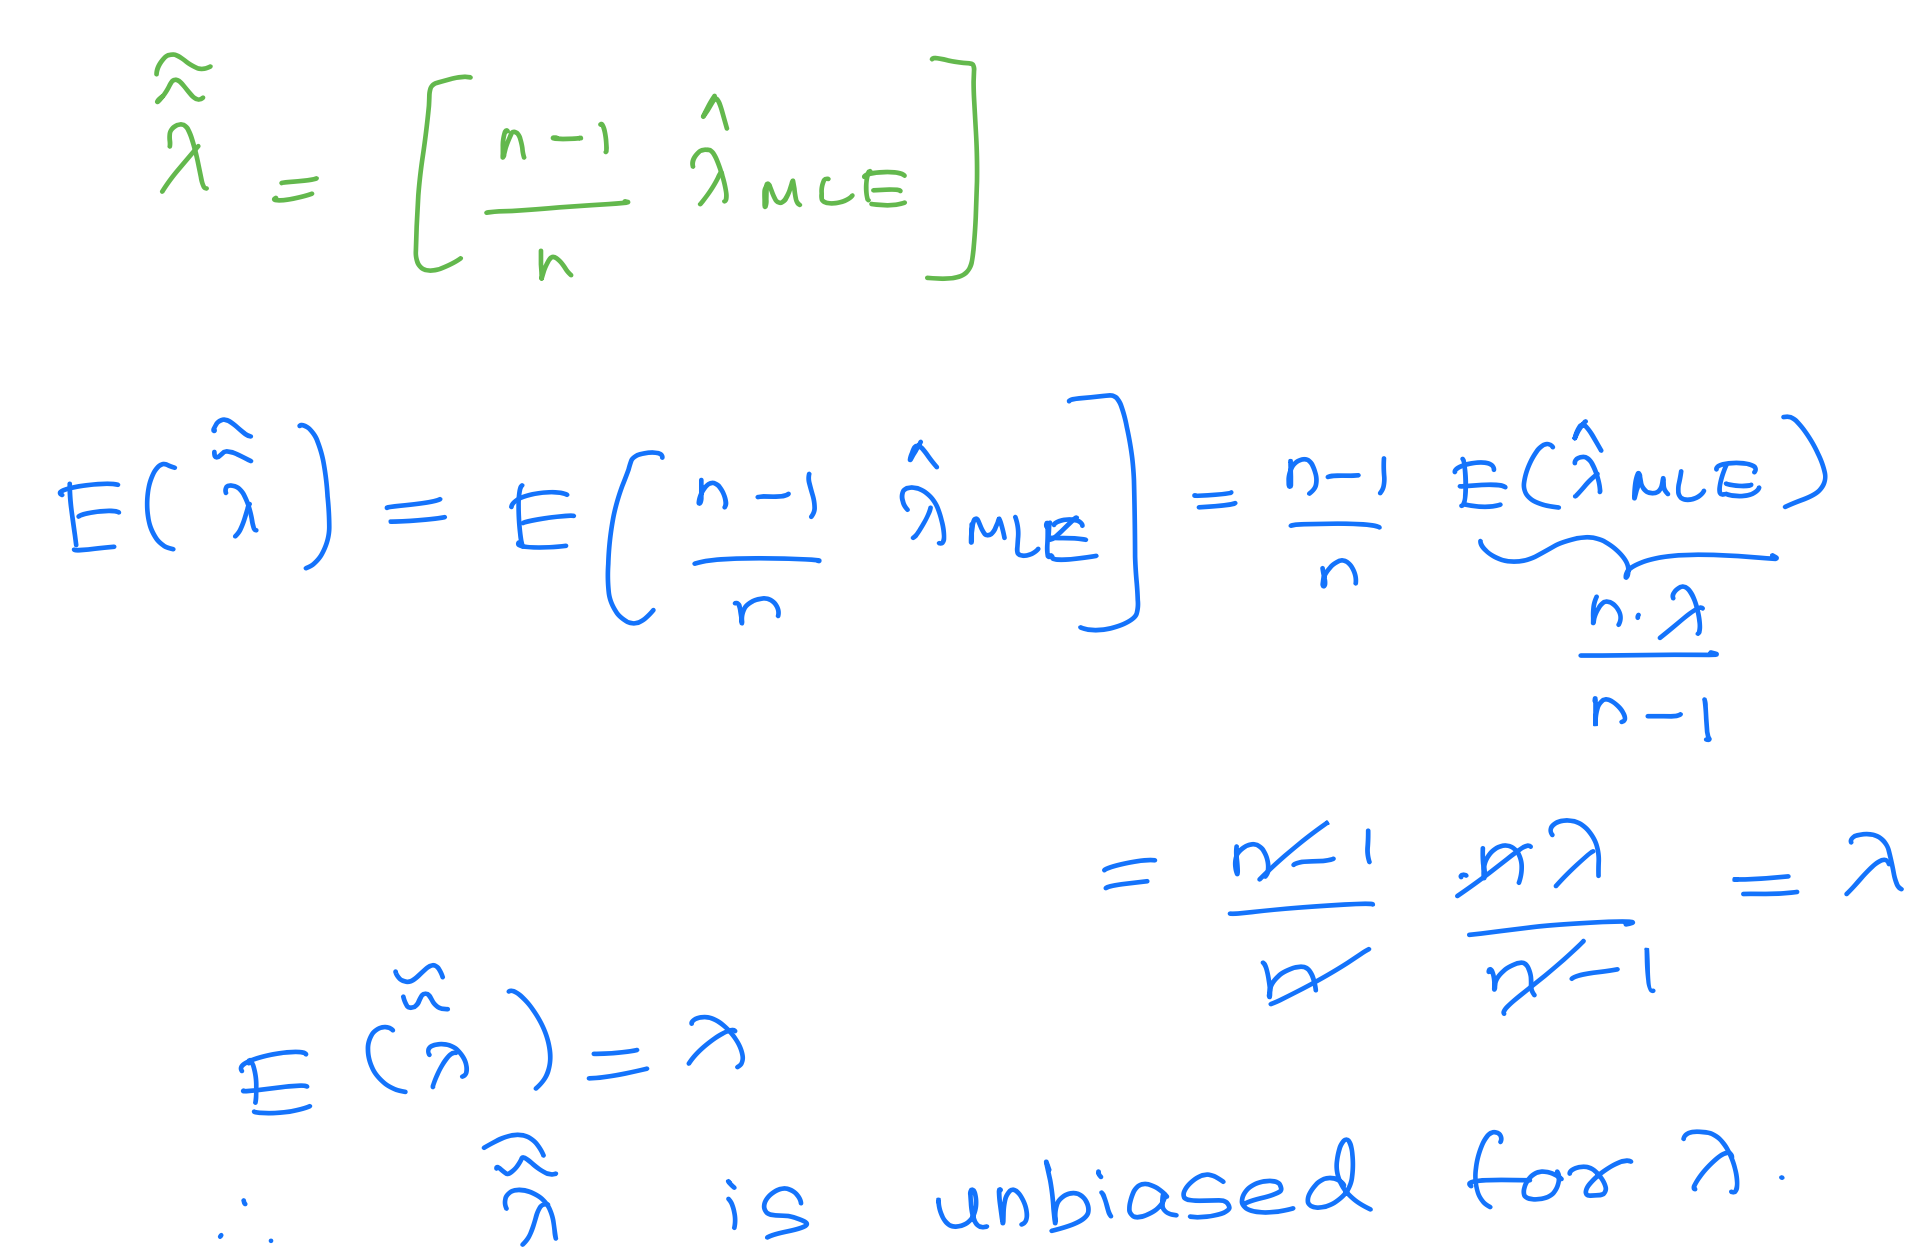 λ̃̃ = [ (n-1)/n λ̂ MLE ]
E(λ̃̃) = E[ (n-1)/n λ̂ MLE ] = (n-1)/n E(λ̂ MLE)
n·λ/(n-1)
= (n-1)/n · nλ/(n-1) = λ
E(λ̃̃) = λ
∴ λ̃̃ is unbiased for λ.